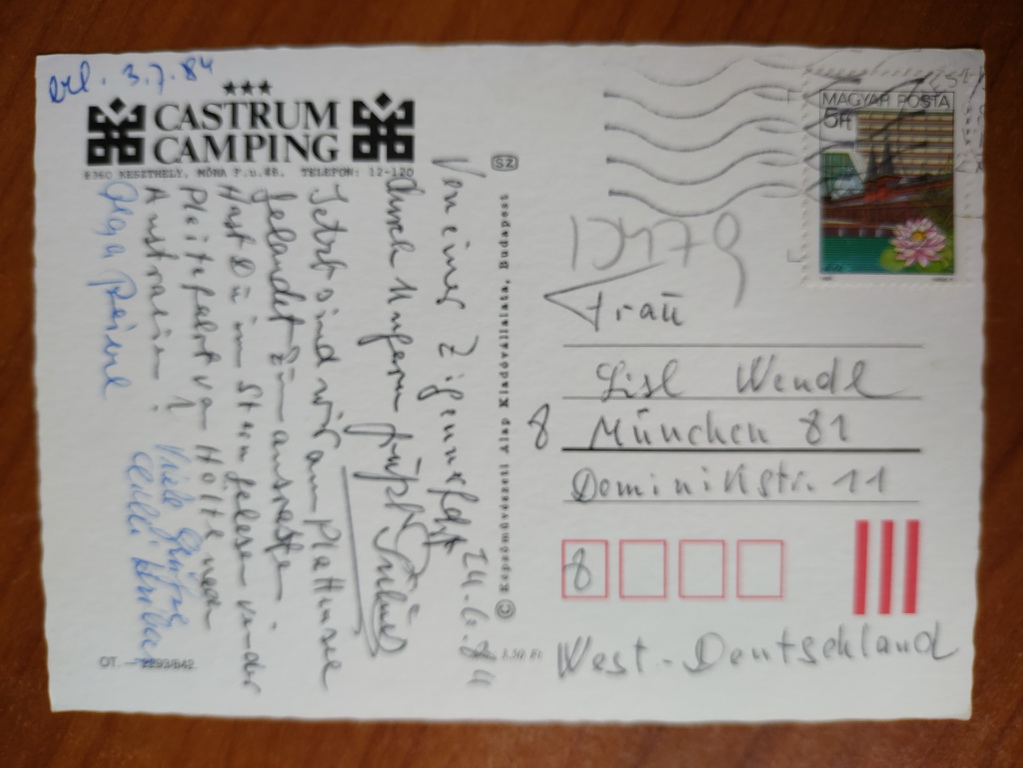 erl. 3.7.84
CASTRUM
CAMPING
8360 KESZTHELY, MÓRA F.u.48. TELEFON: 12-120
24.6.84
Von einer Zigeunerfahrt
durch Ungarn grüßt
Jetzt sind wir am Plattensee
gelandet zum
Hast Du im Stern gelesen von der
Pleitefahrt von Hölte nach
Australien!
Viele Grüße
Olga
SZ
© Képzőművészeti Alap Kiadóvállalata, Budapest
OT. — 2293/842.
MAGYAR POSTA
5Ft
Frau
Lisl Wendl
8 München 81
Dominikstr. 11
8
West-Deutschland